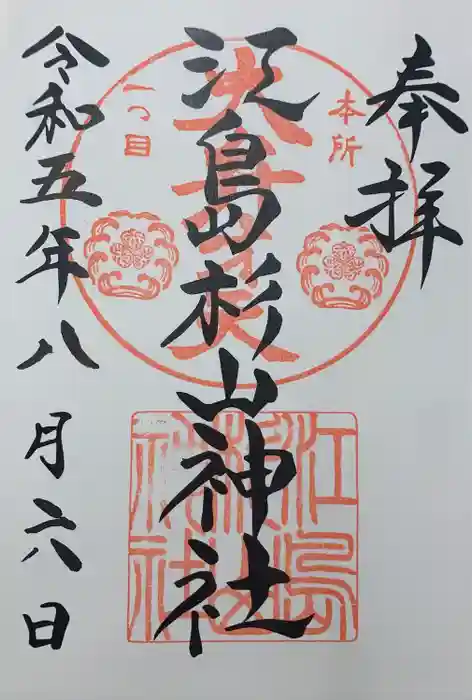 奉拝
本所
江島杉山神社
一つ目
令和五年八月六日
江島杉山神社